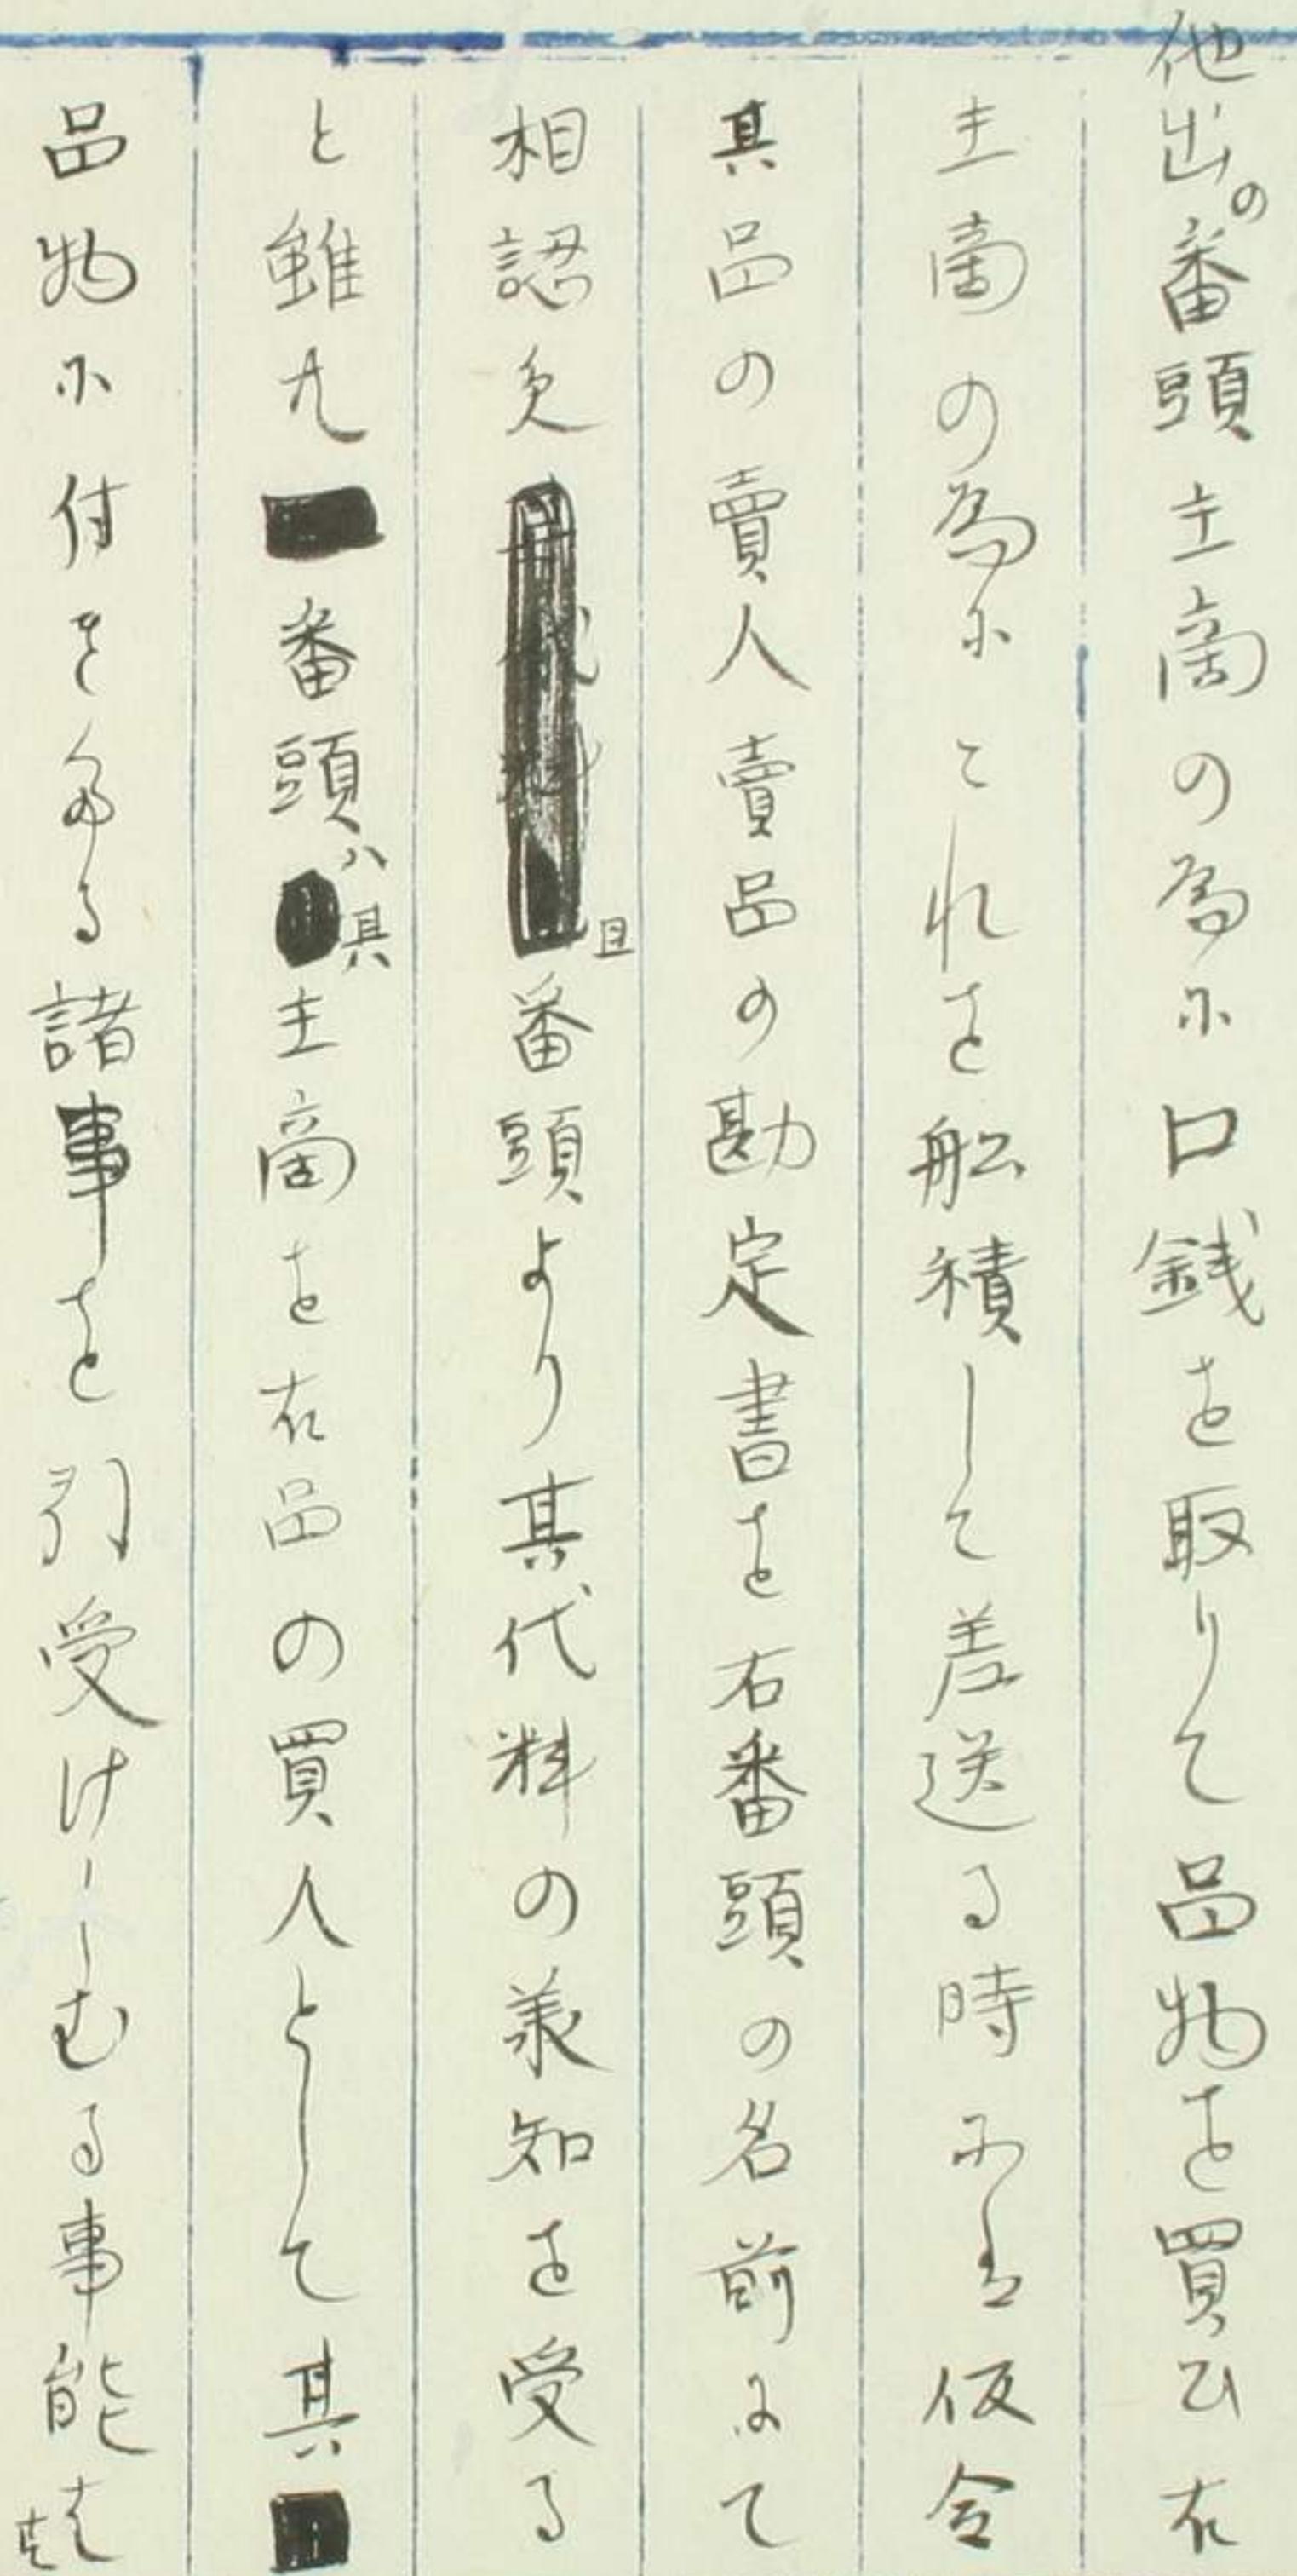 他出の番頭主商の為に口銭を取りて品物を買ひ右
主商の為にこれを船積して差送る時には仮令
其品の賣人賣品の勘定書を右番頭の名前にて
相認め且番頭より其代料の義知を受る
と雖尤番頭ハ其主商を右品の買人として其
品物に付きたる諸事を引受けしむる事能はす